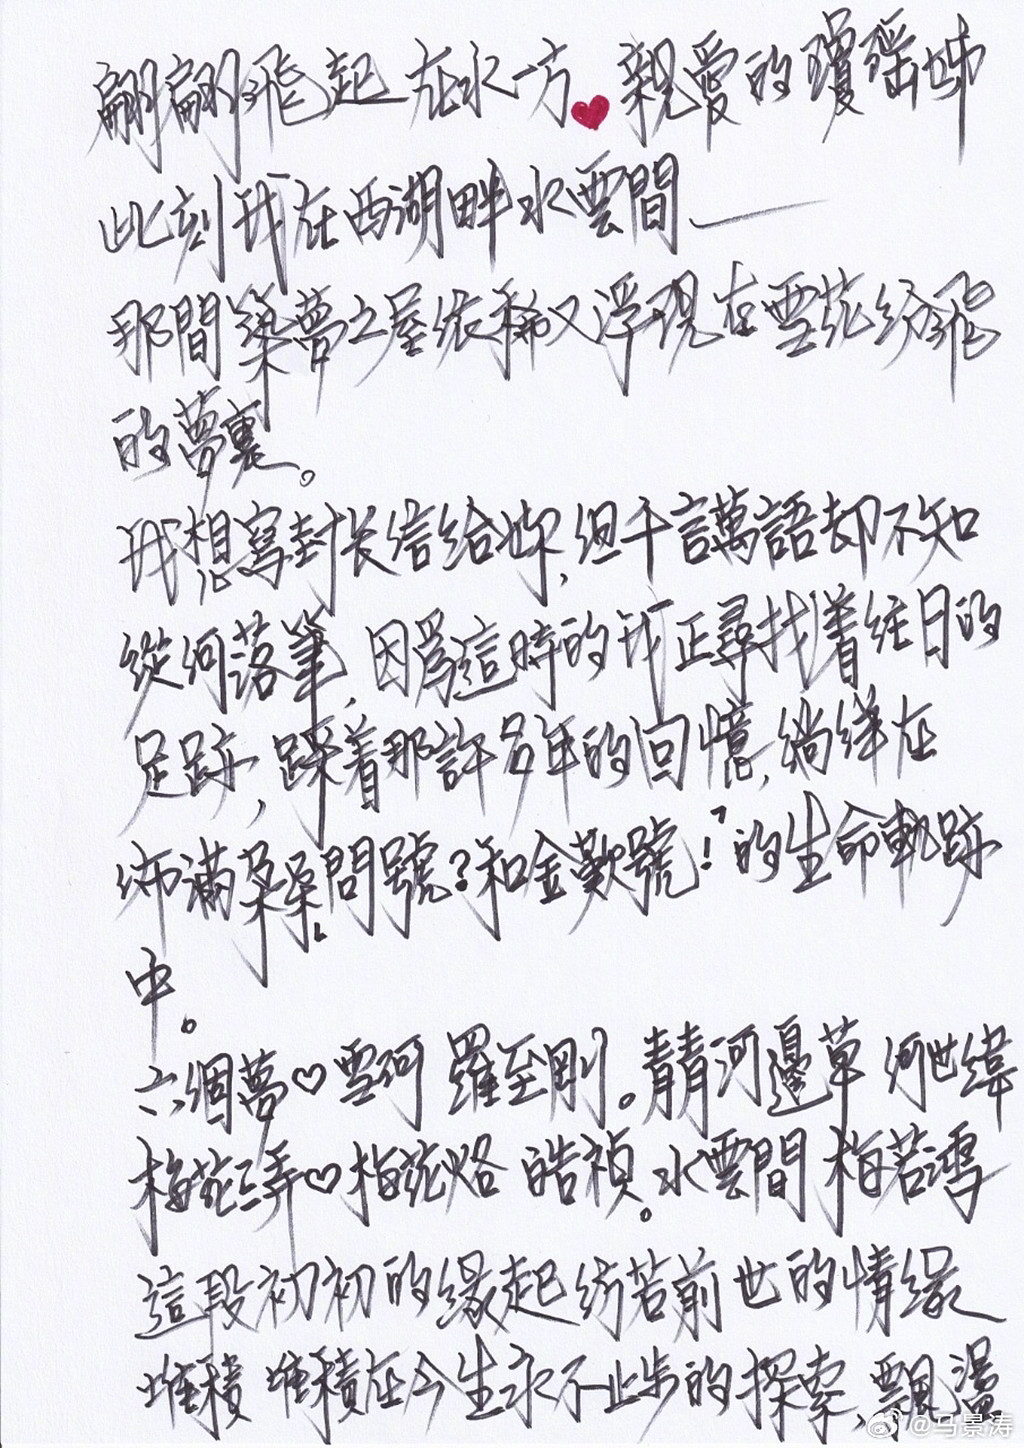 翩翩飛起 在水一方❤親愛的瓊瑤姊
此刻我在西湖畔水雲間——
那間築夢之屋依稀又浮現在雪花紛飛
的夢裏。
我想寫封长信給妳,但千言萬語却不知
從何落筆,因爲這時的我正尋找着往日的
足跡,踩着那許多年的回憶,徜徉在
佈滿朵朵問號?和金歎號!的生命軌跡
中。
六個夢♡雪珂 羅至剛。青青河邊草 何世緯
梅花三弄♡梅花烙 皓禎。水雲間 梅若鴻
這段初初的緣起彷若前世的情缘
堆積 堆積在今生永不止步的探索,飄漫
@马景涛